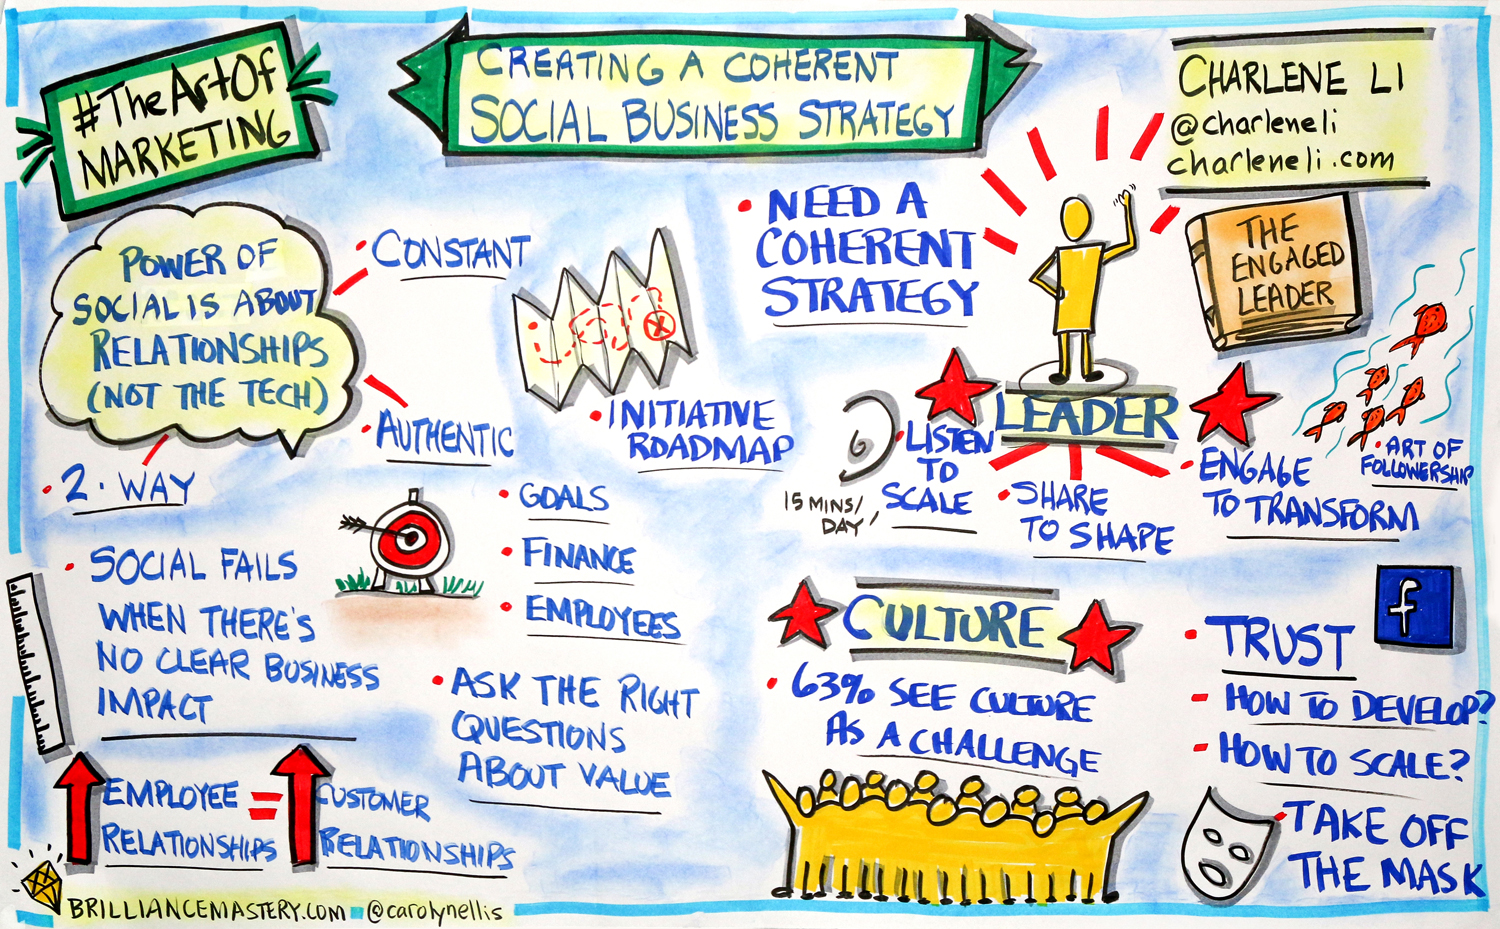 #TheArtOf
MARKETING
CREATING A COHERENT
SOCIAL BUSINESS STRATEGY
CHARLENE LI
@charleneli
charleneli.com
POWER OF
SOCIAL IS ABOUT
RELATIONSHIPS
(NOT THE TECH)
• CONSTANT
• AUTHENTIC
• 2-WAY
• INITIATIVE
ROADMAP
• NEED A
COHERENT
STRATEGY
THE
ENGAGED
LEADER
LEADER
• LISTEN
TO
SCALE
15 MINS/
DAY
• SHARE
TO SHAPE
• ENGAGE
TO TRANSFORM
• ART OF
FOLLOWERSHIP
• SOCIAL FAILS
WHEN THERE'S
NO CLEAR BUSINESS
IMPACT
• GOALS
• FINANCE
• EMPLOYEES
• ASK THE RIGHT
QUESTIONS
ABOUT VALUE
EMPLOYEE
RELATIONSHIPS
=
CUSTOMER
RELATIONSHIPS
CULTURE
• 63% SEE CULTURE
AS A CHALLENGE
f
• TRUST
- HOW TO DEVELOP?
- HOW TO SCALE?
• TAKE OFF
THE MASK
BRILLIANCEMASTERY.COM @carolynellis